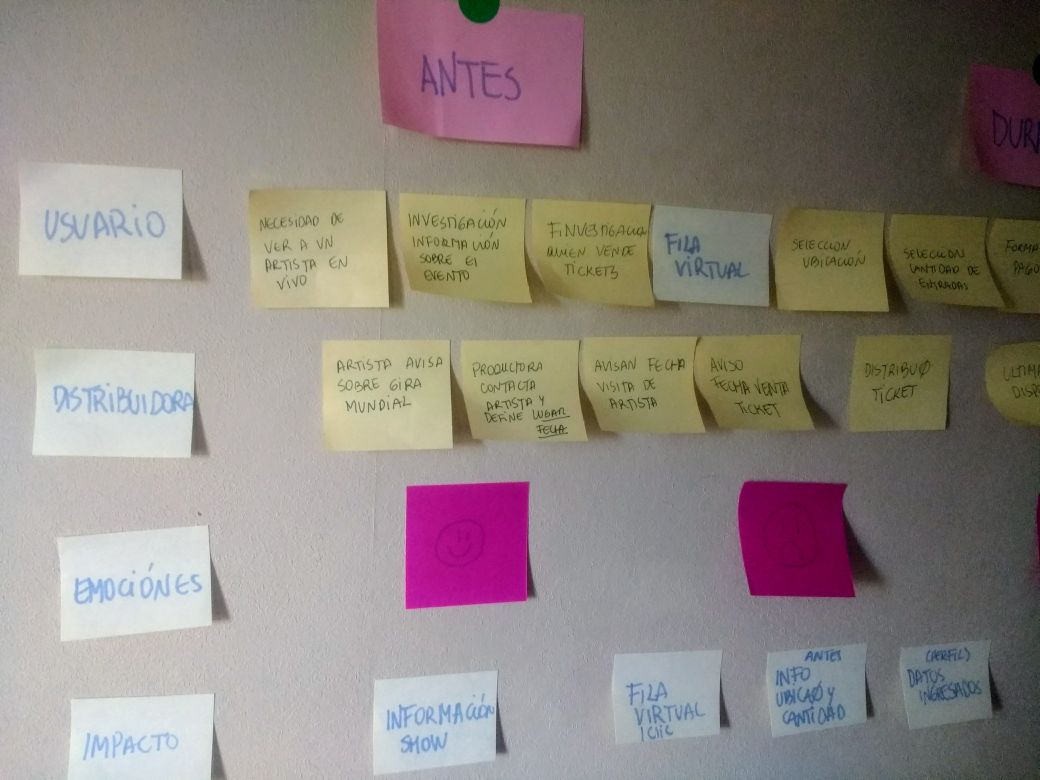 ANTES
DURA
USUARIO
NECESIDAD DE
VER A UN
ARTISTA EN
VIVO
INVESTIGACIÓN
INFORMACIÓN
SOBRE El
EVENTO
QUIEN VENDE
TICKETS
FILA
VIRTUAL
SELECCION
UBICACIÓN
SELECCIÓN
CANTIDAD DE
ENTRADAS
FORMA
PAGO
DISTRIBUIDORA
ARTISTA AVISA
SOBRE GIRA
MUNDIAL
PRODUCTORA
CONTACTA
ARTISTA Y
DEFINE LUGAR
FECHA
AVISAN FECHA
VISITA DE
ARTISTA
AVISO
FECHA VENTA
TICKET
DISTRIBUØ
TICKET
ULTIMA
DISP
EMOCIÓNES
IMPACTO
INFORMACIÓN
SHOW
FILA
VIRTUAL
1 CliC
ANTES
INFO
UBICAØ Y
CANTIDAD
(PERFIL)
DATOS
INGRESADOS